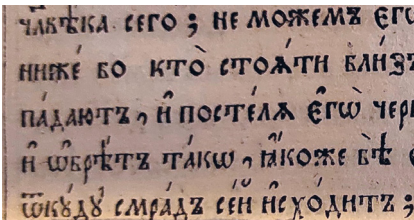 члв҃ѣка сегѡ̀ ; не мо́жемъ є҆гѡ̀
ниже́ бо кто̀ стоѧ́ти бли́зъ
па́даютъ , и҆ посте́лѧ є҆гѡ̀
и҆ ѡ҆брѣ́тъ та́кѡ , ꙗ҆́коже бѣ̀
ѿкꙋ́дꙋ смра́дъ се́й и҆схо́дитъ ;